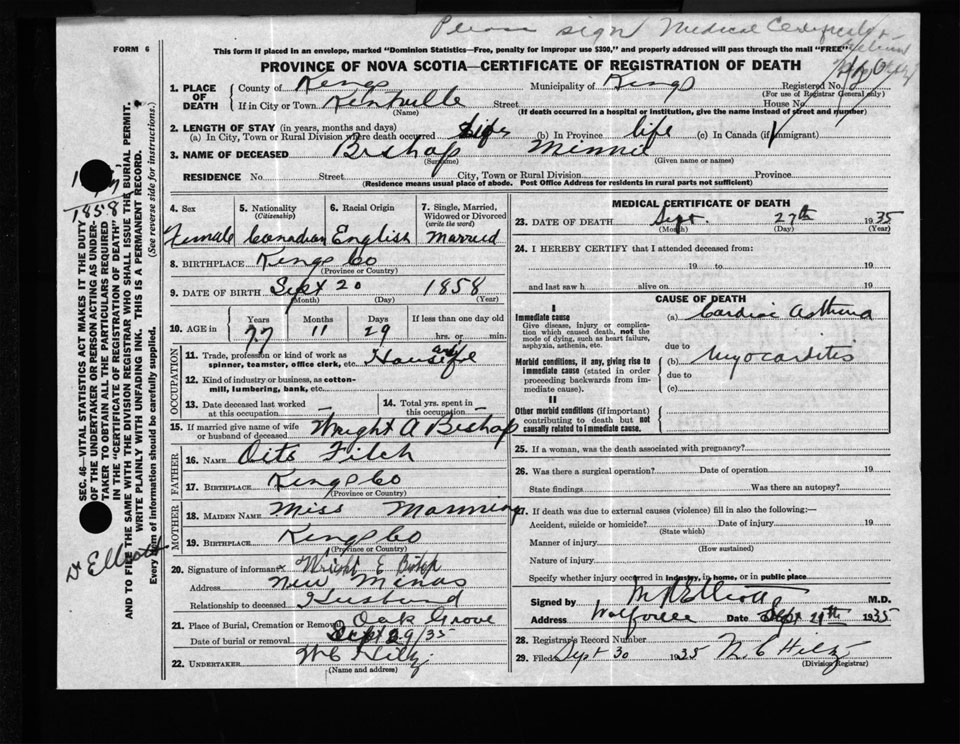 Please sign Medical Certificate
FORM 6
This form if placed in an envelope, marked "Dominion Statistics—Free, penalty for improper use $300," and properly addressed will pass through the mail "FREE"
PROVINCE OF NOVA SCOTIA—CERTIFICATE OF REGISTRATION OF DEATH
1. PLACE OF DEATH County of Kings Municipality of Kings Registered No.
(For use of Registrar General only)
If in City or Town Kentville Street House No.
(Name) (If death occurred in a hospital or institution, give the name instead of street and number)
2. LENGTH OF STAY (in years, months and days)
(a) In City, Town or Rural Division where death occurred life (b) In Province life (c) In Canada (if immigrant)
3. NAME OF DECEASED Bishop Minnie
(Surname) (Given name or names)
RESIDENCE No. Street City, Town or Rural Division Province
(Residence means usual place of abode. Post Office Address for residents in rural parts not sufficient)
4. Sex 5. Nationality (Citizenship) 6. Racial Origin 7. Single, Married, Widowed or Divorced (write the word)
Female Canadian English Married
8. BIRTHPLACE Kings Co
(Province or Country)
9. DATE OF BIRTH Sept 20 1858
(Month) (Day) (Year)
10. AGE in Years Months Days If less than one day old
77 11 29 hrs. or min.
OCCUPATION
11. Trade, profession or kind of work as spinner, teamster, office clerk, etc. Housewife
12. Kind of industry or business, as cotton-mill, lumbering, bank, etc.
13. Date deceased last worked at this occupation 14. Total yrs. spent in this occupation
15. If married give name of wife or husband of deceased Wright A Bishop
FATHER
16. NAME Fitch
17. BIRTHPLACE Kings Co
(Province or Country)
MOTHER
18. MAIDEN NAME Miss Manning
19. BIRTHPLACE Kings Co
(Province or Country)
20. Signature of informant Wright E Bishop
Address New Minas
Relationship to deceased Husband
21. Place of Burial, Cremation or Removal Oak Grove
Date of burial or removal Sept 29/35
22. UNDERTAKER W C Hiltz
(Name and address)
MEDICAL CERTIFICATE OF DEATH
23. DATE OF DEATH Sept. 27th 1935
(Month) (Day) (Year)
24. I HEREBY CERTIFY that I attended deceased from:
19 to 19
and last saw h alive on 19
CAUSE OF DEATH
I
Immediate cause (a) Cardiac Asthma
Give disease, injury or complication which caused death, not the mode of dying, such as heart failure, asphyxia, asthenia, etc.
due to
Morbid conditions, if any, giving rise to immediate cause (stated in order proceeding backwards from immediate cause).
(b) Myocarditis
due to
(c)
II
Other morbid conditions (if important) contributing to death but not causally related to immediate cause.
25. If a woman, was the death associated with pregnancy?
26. Was there a surgical operation? Date of operation 19
State findings Was there an autopsy?
27. If death was due to external causes (violence) fill in also the following:—
Accident, suicide or homicide? Date of injury 19
(State which)
Manner of injury
(How sustained)
Nature of injury
Specify whether injury occurred in industry, in home, or in public place
Signed by M R Elliott M.D.
Address Wolfville Date Sept 29th 1935
28. Registrar's Record Number
29. Filed Sept 30 1935 W. C Hiltz
(Division Registrar)
1858
Dr Elliott
SEC. 46—VITAL STATISTICS ACT MAKES IT THE DUTY OF THE UNDERTAKER OR PERSON ACTING AS UNDERTAKER TO OBTAIN ALL THE PARTICULARS REQUIRED IN THE "CERTIFICATE OF REGISTRATION OF DEATH", AND TO FILE THE SAME WITH THE DIVISION REGISTRAR WHO SHALL ISSUE THE BURIAL PERMIT.
WRITE PLAINLY WITH UNFADING INK. THIS IS A PERMANENT RECORD.
Every item of information should be carefully supplied. (See reverse side for instructions.)